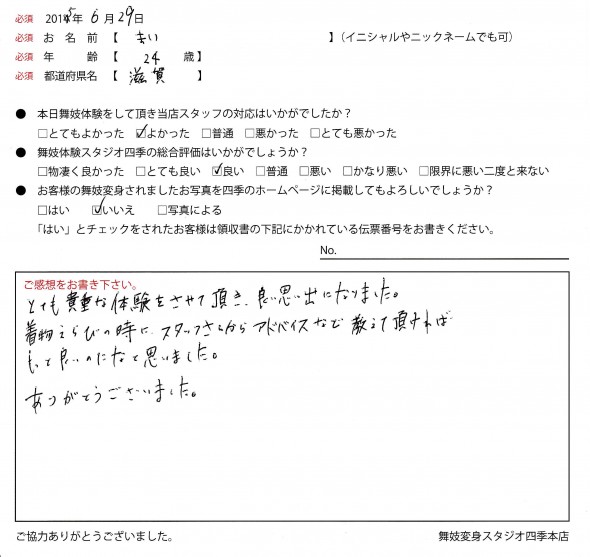 必須 2015年 6月 29日
必須 お 名 前 【 まい 】（イニシャルやニックネームでも可）
必須 年 齢 【 24 歳】
必須 都道府県名 【 滋賀 】
● 本日舞妓体験をして頂き当店スタッフの対応はいかがでしたか？
□とてもよかった ☑よかった □普通 □悪かった □とても悪かった
● 舞妓体験スタジオ四季の総合評価はいかがでしょうか？
□物凄く良かった □とても良い ☑良い □普通 □悪い □かなり悪い □限界に悪い二度と来ない
● お客様の舞妓変身されましたお写真を四季のホームページに掲載してもよろしいでしょうか？
□はい ☑いいえ □写真による
「はい」とチェックをされたお客様は領収書の下記にかかれている伝票番号をお書きください。
No.
ご感想をお書き下さい。
とても貴重な体験をさせて頂き、良い思い出になりました。
着物えらびの時に、スタッフさんからアドバイスなど教えて頂ければ
もっと良いのになと思いました。
ありがとうございました。
ご協力ありがとうございました。
舞妓変身スタジオ四季本店